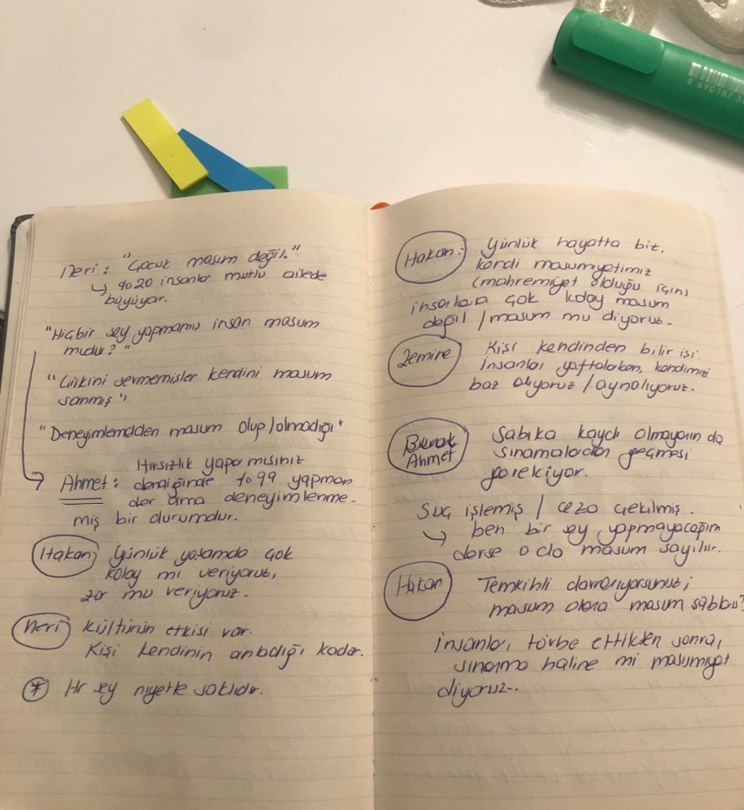 Neri : "Çocuk masum değil."
↳ %20 insanlar mutlu ailede
büyüyor.
"Hiçbir şey yapmamış insan masum
mudur?"
"Çirkini sevmemişler kendini masum
sanmış"
"Deneyimlemeden masum olup/olmadığı"
Hırsızlık yapar mısınız
Ahmet : dendiğinde %99 yapmam
der ama deneyimlenme-
miş bir durumdur.
Hakan Günlük yaşamda çok
kolay mı veriyoruz,
zor mu veriyoruz.
Neri Kültürün etkisi var.
Kişi kendinin anladığı kadar.
* Hr şey niyette saklıdır.
Hakan: Günlük hayatta biz,
kendi masumiyetimiz
(mahremiyet olduğu için)
insanlara çok kolay masum
değil / masum mu diyoruz.
Zemine Kişi kendinden bilir işi.
İnsanları yaftalarken, kendimizi
baz alıyoruz / aynalıyoruz.
Burak Sabıka kaydı olmayanın da
Ahmet sınamalardan geçmesi
gerekiyor.
Suç işlemiş / ceza çekilmiş.
↳ ben bir şey yapmayacağım
derse o da masum sayılır.
Hakan Temkinli davranıyorsunuz;
masum olana masum
İnsanlar, tövbe ettikten sonra,
sınanma haline mi masumiyet
diyoruz..
8 690187